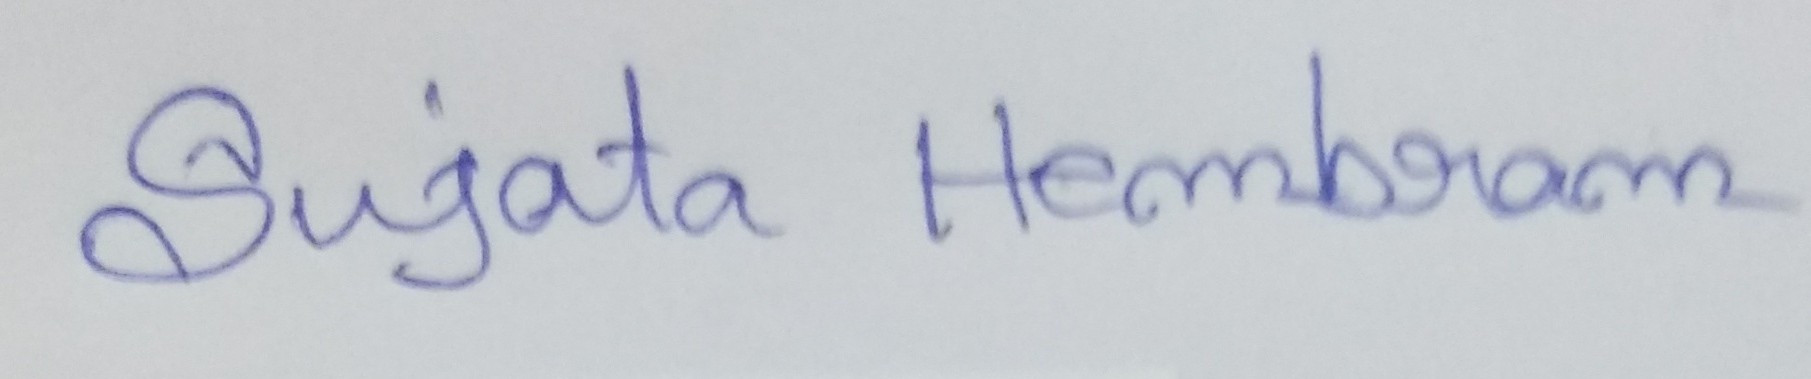 Sujata Hembram